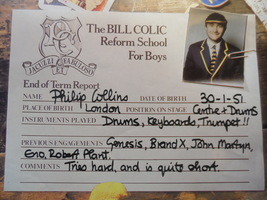 The BILL COLIC
Reform School
For Boys
JACUZZI FABULOSO
End of Term Report
NAME Philip Collins DATE OF BIRTH 30-1-51
PLACE OF BIRTH London POSITION ON STAGE Centre + Drums
INSTRUMENTS PLAYED Drums, Keyboards, Trumpet!!
PREVIOUS ENGAGEMENTS Genesis, Brand X, John Martyn,
Eno, Robert Plant.
COMMENTS Tries hard, and is quite short.